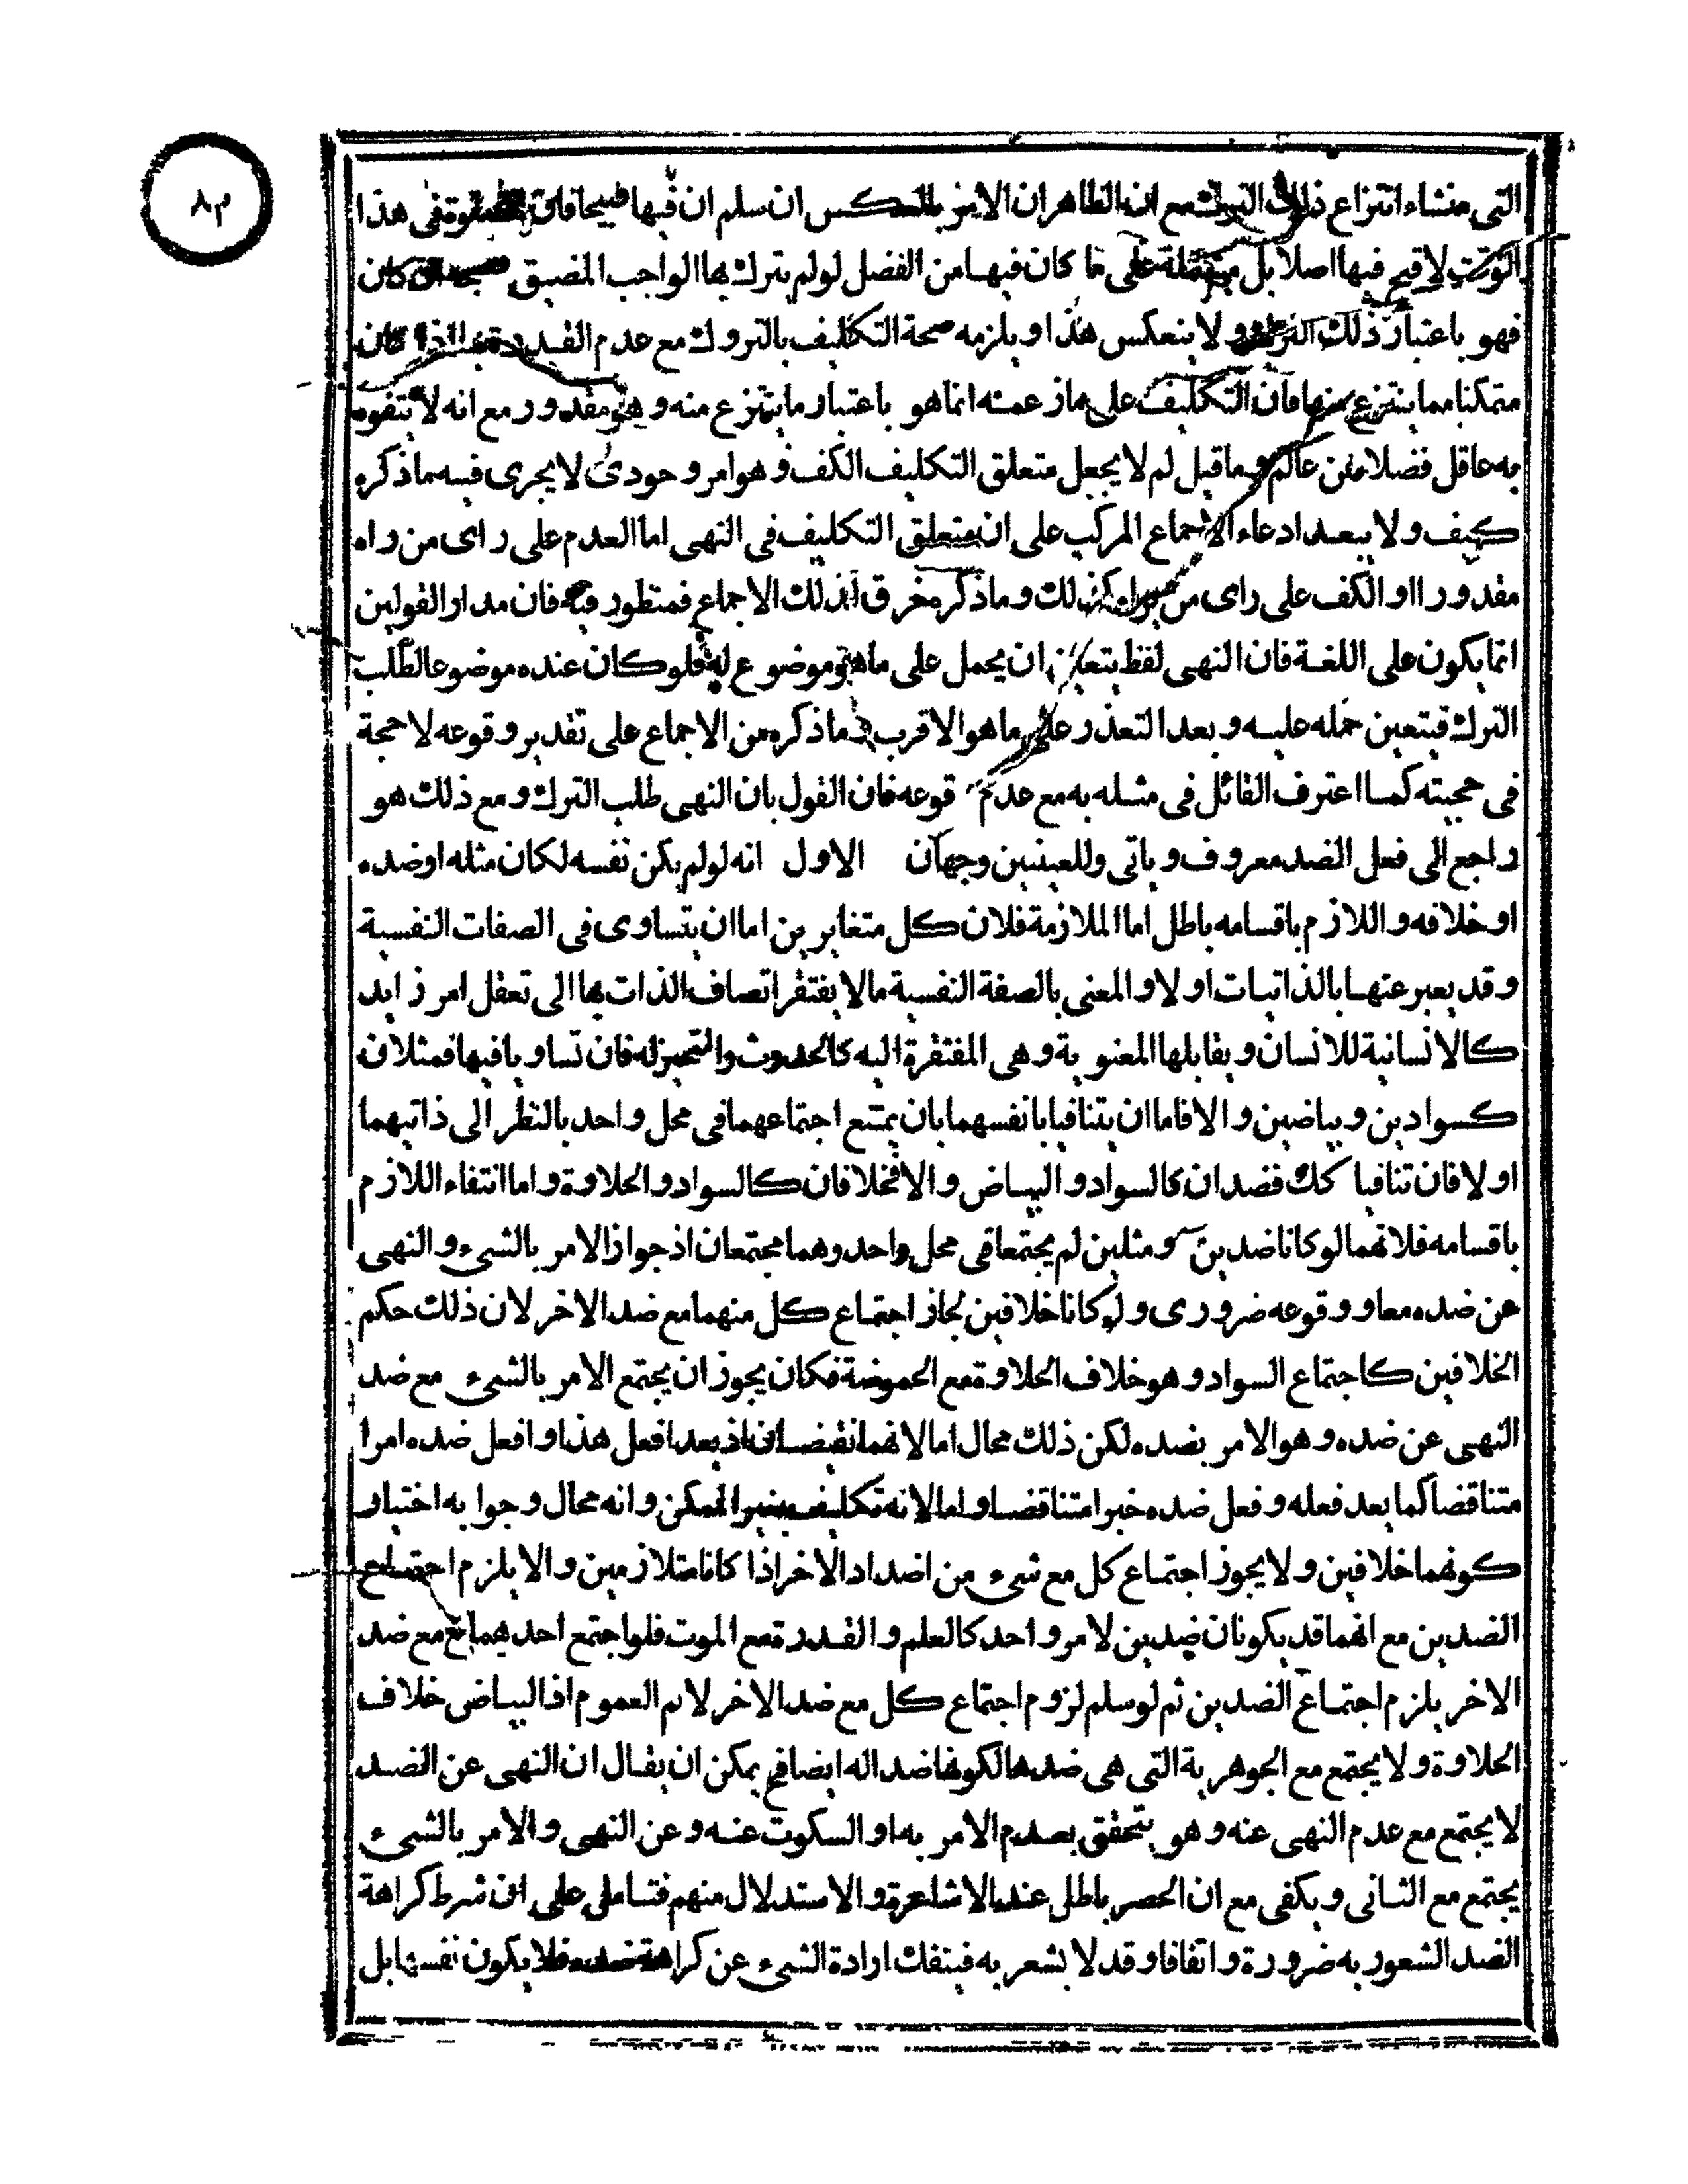 م٨
التى منشاء انتزاع ذلك الترك مع ان الظاهر ان الامر بالعكس ان سلم ان فيها قبيحا فان الصلوة فى هذا
الوقت لا قبح فيها اصلا بل مشتملة على ما كان فيها من الفضل لو لم يترك بها الواجب المضيق كان
فهو باعتبار ذلك الترك ولا ينعكس هذا و يلزمه صحة التكليف بالتروك مع عدم القدرة اذا كان
متمكنا مما ينتزع منها فان التكليف على ما زعمته انما هو باعتبار ما ينتزع منه وهو مقدور مع انه لا يتفوه
به عاقل فضلا من عالم وما قيل لم لا يجعل متعلق التكليف الكف وهو امر وجودى لا يجرى فيه ما ذكره
كيف ولا يبعد ادعاء الاجماع المركب على ان متعلق التكليف فى النهى اما العدم على راى من راه
مقدورا او الكف على راى من لم يره كذلك وما ذكره خرق لذلك الاجماع فمنظور فيه فان مدار القولين
انما يكون على اللغة فان النهى لفظ يتعين ان يحمل على ما هو موضوع له فلو كان عنده موضوعا لطلب
الترك فيتعين حمله عليه و بعد التعذر على ما هو الاقرب و ما ذكره من الاجماع على تقدير وقوعه لا حجة
فى حجيته كما اعترف القائل فى مثله به مع عدم وقوعه فان القول بان النهى طلب الترك و مع ذلك هو
راجع الى فعل الضد معروف و ياتى وللعينيين وجهان الاول انه لو لم يكن نفسه لكان مثله او ضده
او خلافه و اللازم باقسامه باطل اما الملازمة فلان كل متغايرين اما ان يتساوى فى الصفات النفسية
وقد يعبر عنها بالذاتيات اولا و المعنى بالصفة النفسية ما لا يفتقر اتصاف الذات بها الى تعقل امر زايد
كالانسانية للانسان و يقابلها المعنوية وهى المفتقرة اليه كالحدوث والتحيز له فان تساويا فيها فمثلان
كسوادين و بياضين و الا فاما ان يتنافيا بانفسهما بان يمتنع اجتماعهما فى محل واحد بالنظر الى ذاتيهما
اولا فان تنافيا كك فضدان كالسواد و البياض و الا فخلافان كالسواد و الحلاوة و اما انتفاء اللازم
باقسامه فلانهما لو كانا ضدين و مثلين لم يجتمعا فى محل واحد وهما مجتمعان اذ جواز الامر بالشىء و النهى
عن ضده معا و وقوعه ضرورى و لو كانا خلافين لجاز اجتماع كل منهما مع ضد الاخر لان ذلك حكم
الخلافين كاجتماع السواد و هو خلاف الحلاوة مع الحموضة فكان يجوز ان يجتمع الامر بالشىء مع ضد
النهى عن ضده و هو الامر بضده لكن ذلك محال اما لانهما نقيضان اذ يعد افعل هذا و افعل ضده امرا
متناقضا كما يعد فعله و فعل ضده خبرا متناقضا و اما لانه تكليف بغير الممكن و انه محال و جوابه اختيار
كونهما خلافين و لا يجوز اجتماع كل مع شىء من اضداد الاخر اذا كانا متلازمين و الا يلزم اجتماع
الضدين مع انهما قد يكونان ضدين لامر واحد كالعلم و القدرة مع الموت فلو اجتمع احدهما مع ضد
الاخر يلزم اجتماع الضدين ثم لو سلم لزوم اجتماع كل مع ضد الاخر لا نم العموم اذ البياض خلاف
الحلاوة و لا يجتمع مع الجوهرية التى هى ضدها لكونها ضدا له ايضا فح يمكن ان يقال ان النهى عن الضد
لا يجتمع مع عدم النهى عنه و هو يتحقق بعدم الامر به او السكوت عنه و عن النهى و الامر بالشىء
يجتمع مع الثانى و يكفى مع ان الحصر باطل عند الاشاعرة و الاستدلال منهم فتامل على ان شرط كراهة
الضد الشعور به ضرورة و اتفاقا و قد لا يشعر به فينفك ارادة الشىء عن كراهة ضده فلا يكون نفسها بل